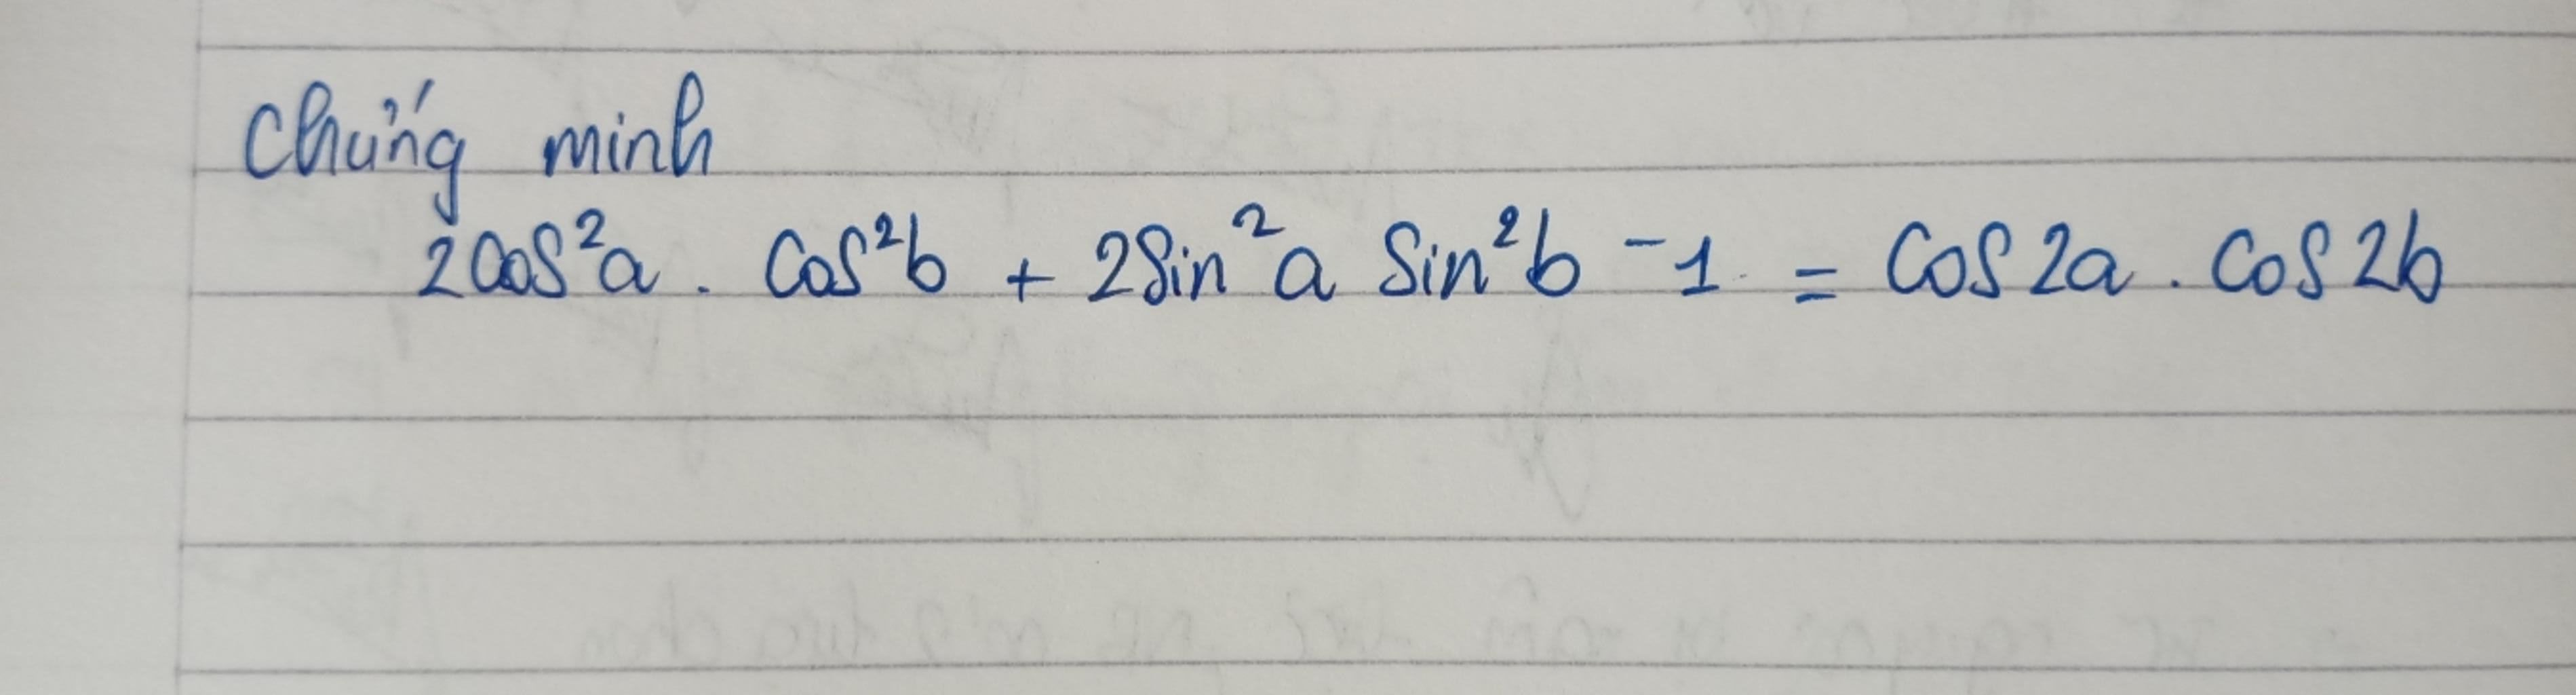 Chứng minh
2cos²a . cos²b + 2sin²a sin²b - 1 = cos2a . cos2b